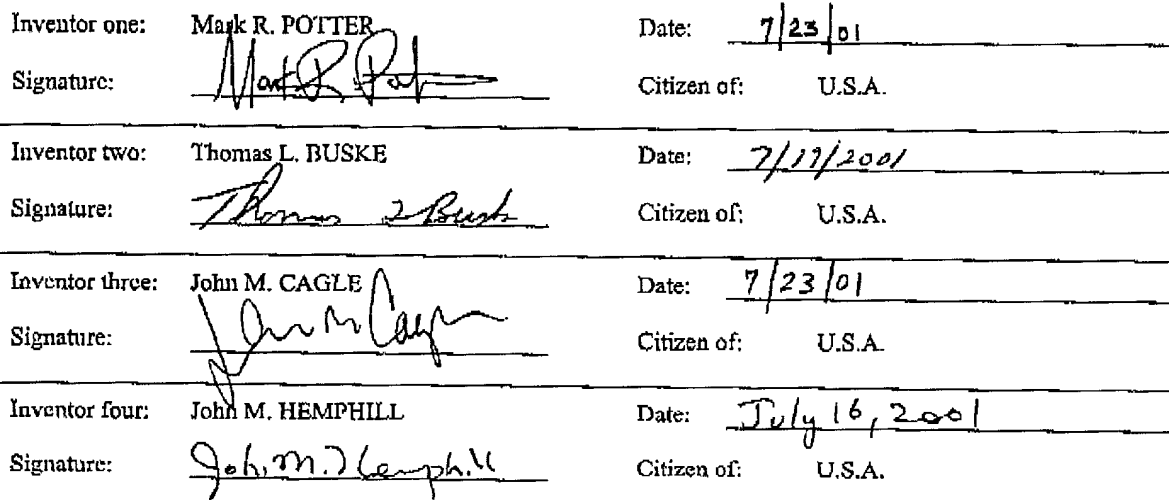 Inventor one: Mark R. POTTER Date: 7/23/01
Signature: Mark R. Pot Citizen of: U.S.A.
Inventor two: Thomas L. BUSKE Date: 7/17/2001
Signature: Thomas L Busk Citizen of: U.S.A.
Inventor three: John M. CAGLE Date: 7/23/01
Signature: John M Cagle Citizen of: U.S.A.
Inventor four: John M. HEMPHILL Date: July 16, 2001
Signature: John M. Hemphill Citizen of: U.S.A.